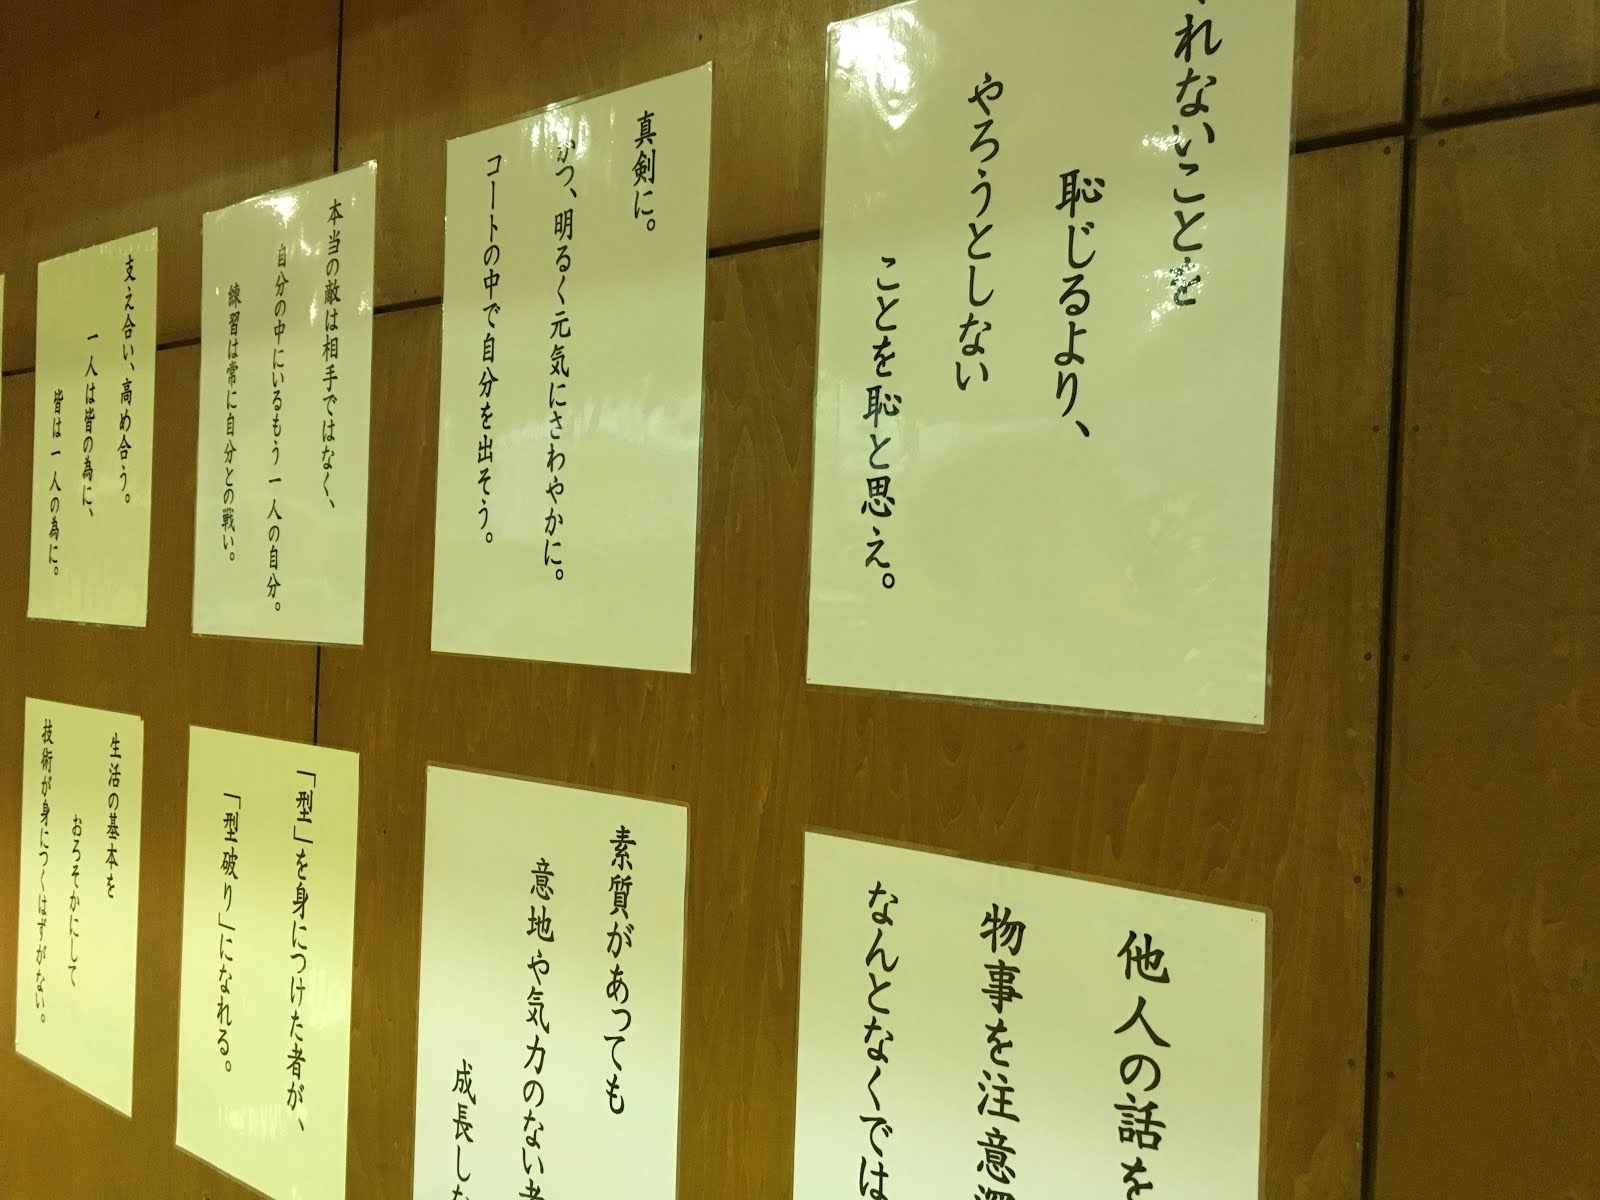 れないことを
恥じるより、
やろうとしない
ことを恥と思え。
真剣に。
かつ、明るく元気にさわやかに。
コートの中で自分を出そう。
本当の敵は相手ではなく、
自分の中にいるもう一人の自分。
練習は常に自分との戦い。
支え合い、高め合う。
一人は皆の為に、
皆は一人の為に。
他人の話を
物事を注意深
なんとなくでは
素質があっても
意地や気力のない者
成長しな
「型」を身につけた者が、
「型破り」になれる。
生活の基本を
おろそかにして
技術が身につくはずがない。